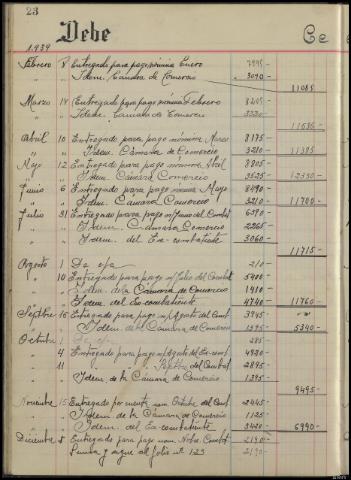 23
Debe
Ce
1.939
Febrero 8 Entregado para pago nómina Enero 7995-
" " Idem. Cámara de Comercio 3090- 11085
Marzo 14 Entregado para pago nómina Febrero 8405-
" " Idem. Camara de Comercio 3230-
Abril 10 Entregado para pago nómina Marzo 8175-
" " Idem. Cámara de Comercio 3210- 11385
Mayo 12 Entregado para pago nómina Abril 8805-
" " Idem. Camara Comercio 3525- 12330-
Junio 6 Entregado para pago nómina Mayo 8490-
" " Idem. Camara Comercio 3210- 11700-
Julio 31 Entregado para pago n/ Junio del Combat
" " Idem. Camara Comercio
" " Idem. del Ex-combatiente 3060-
11715-
Agosto 1 210-
" 10 Entregado para pago n/ Julio del Combat 5400-
" " Idem. de la Cámara de Comercio 1410-
Idem. del Ex-combatiente 4740- 11760-
Septbre 15 Entregado para pago n/ Agosto del Com. 3945-
" " Idem. de la Camara de Comercio 1395- 5340-
Octubre 1 285-
" 4 Entregado para pago n/ Agosto del Ex-comt 4920-
" 11 " " Septbre del Combat 2895-
Idem de la Cámara de Comercio 1395-
9495-
Noviembre 15 Entregado por cuenta nom Octubre del Comt 2445-
" " Idem de la Cámara de Comercio 1125-
Idem. del Ex-combatiente 3420- 6990-
Diciembre 8 Entregado para pago nom. Nobre. Combat 2190-
Suma y sigue al folio nº 123 2190-